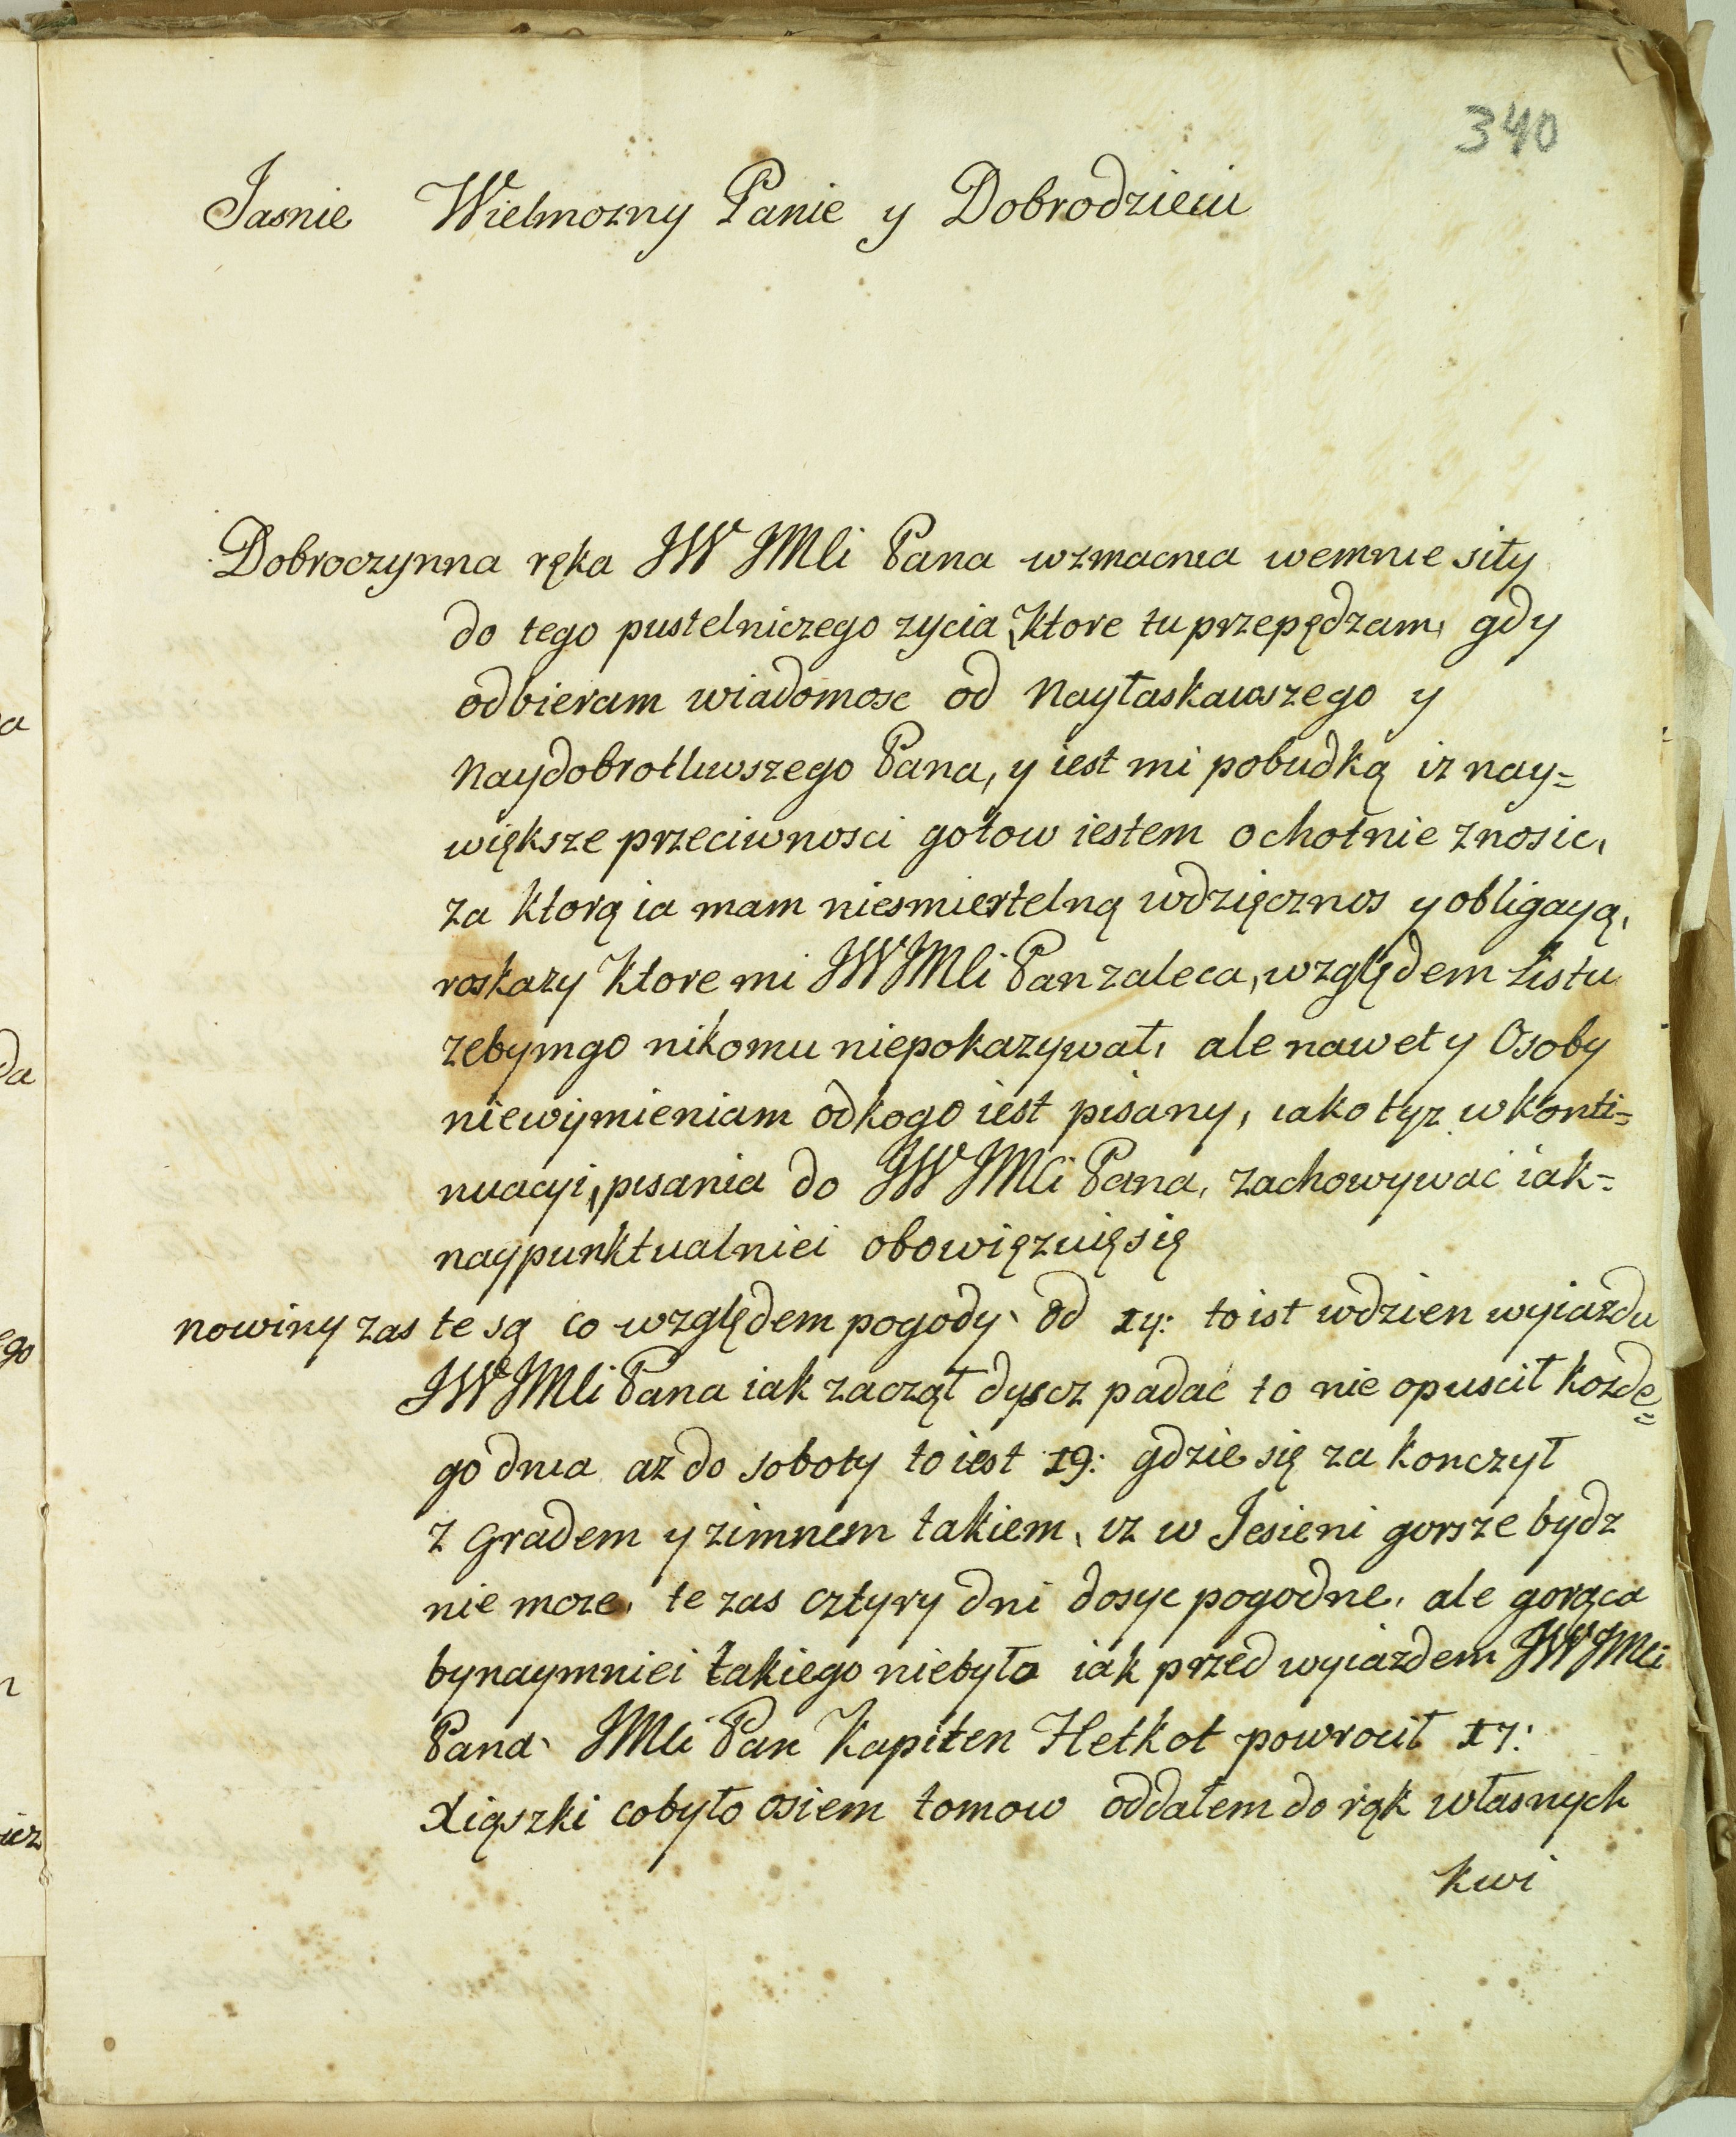 340
Jasnie Wielmozny Panie y Dobrodzieiu
Dobroczynna ręka JW JMli Pana wzmacnia wemnie siły
do tego pustelniczego zycia, ktore tu przepędzam, gdy
odbieram wiadomosc od Nayłaskawszego y
Naydobrotliwszego Pana, y iest mi pobudką iz nay=
większe przeciwnosci gotow iestem ochotnie znosic,
za ktorą ia mam niesmiertelną wdzięcznos y obligayą,
roskazy ktore mi JW JMli Pan zaleca, względem Listu
zebymgo nikomu niepokazywał, ale nawet y Osoby
niewymieniam odkogo iest pisany, iako tyz w konti=
nuacyi, pisania do JW JMli Pana, zachowywać iak=
naypunktualniei obowięzuię się
nowiny zas te są co względem pogody, od 14: toist wdzien wyiazdu
JW JMli Pana iak zaczął dyscz padać to nie opuscił kozde=
go dnia az do soboty to iest 19: gdzie się za konczył
z Gradem y zimnem takiem, iz w Jesieni gorsze bydz
nie moze, te zas cztyry dni dosyc pogodne, ale gorąca
bynaymniei takiego niebyło iak przed wyiazdem JW JMli
Pana, JMli Pan Kapiten Hetkot powrocił 17:
Xiąszki cobyło osiem tomow oddałem do rąk własnych
kwi
a
da
ego
n
icz